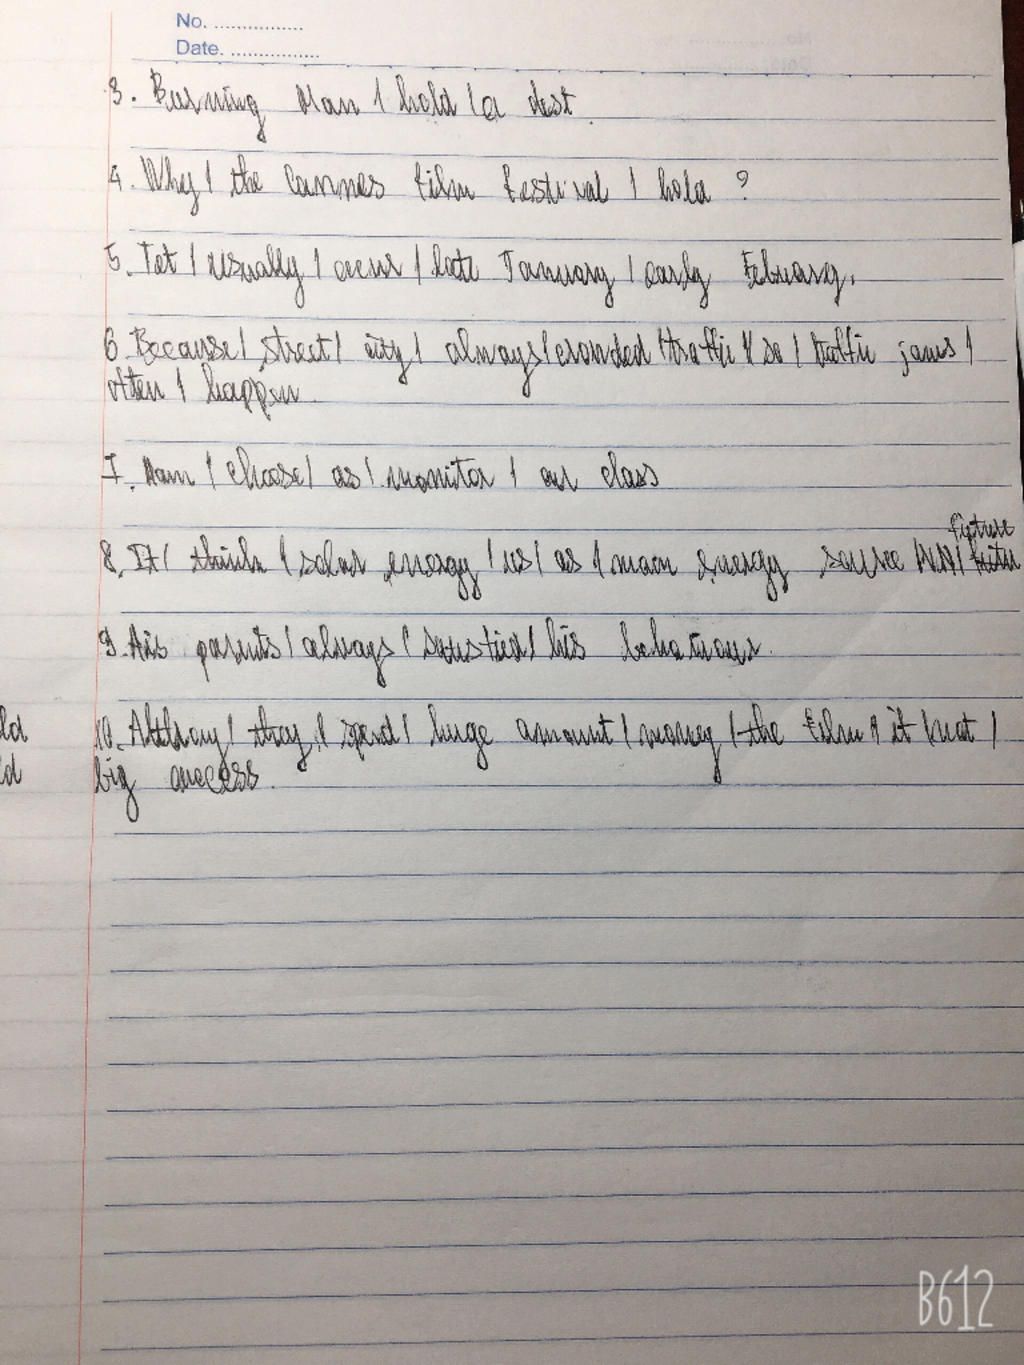 No. ................
Date. ................
3. Burning Man / hold / a dest.
4. Why / the Cannes Film Festival / hold ?
5. Tet / usually / occur / late January / early February.
6. Because / street / city / always / crowded / traffic / so / traffic jams /
often / happen
7. Nam / choose / as / monitor / our class
future
8. It / think / solar energy / us / as / main energy source
9. His parents / always / his behaviour.
10. Although / they / spend / huge amount / money / the film / it / not /
big success.
ld
d
B612